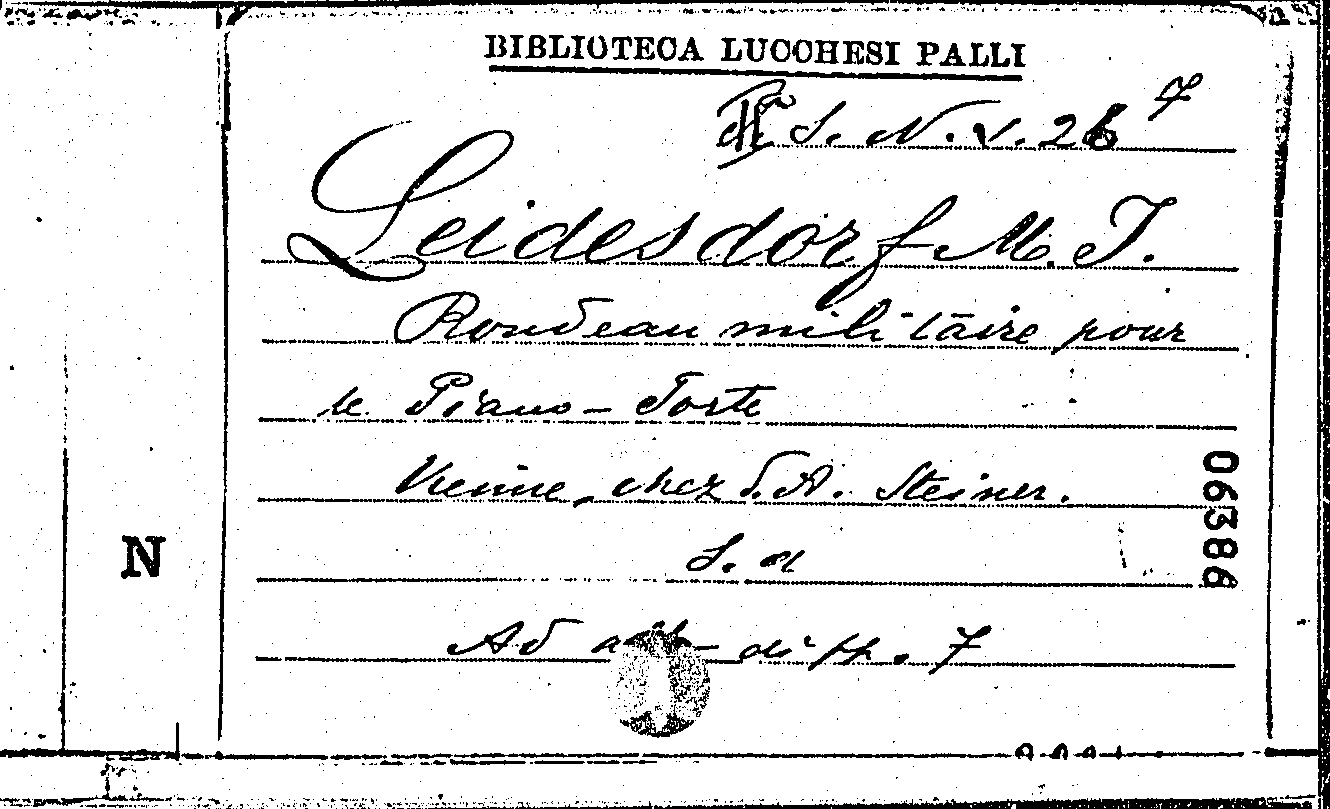 BIBLIOTECA LUCCHESI PALLI
S. N. V. 26 7
Leidesdorf M. J.
Rondeau militaire pour
le Piano-Forte
Vienne, chez S. A. Steiner.
S. a
N
06386
Ad diff. 7